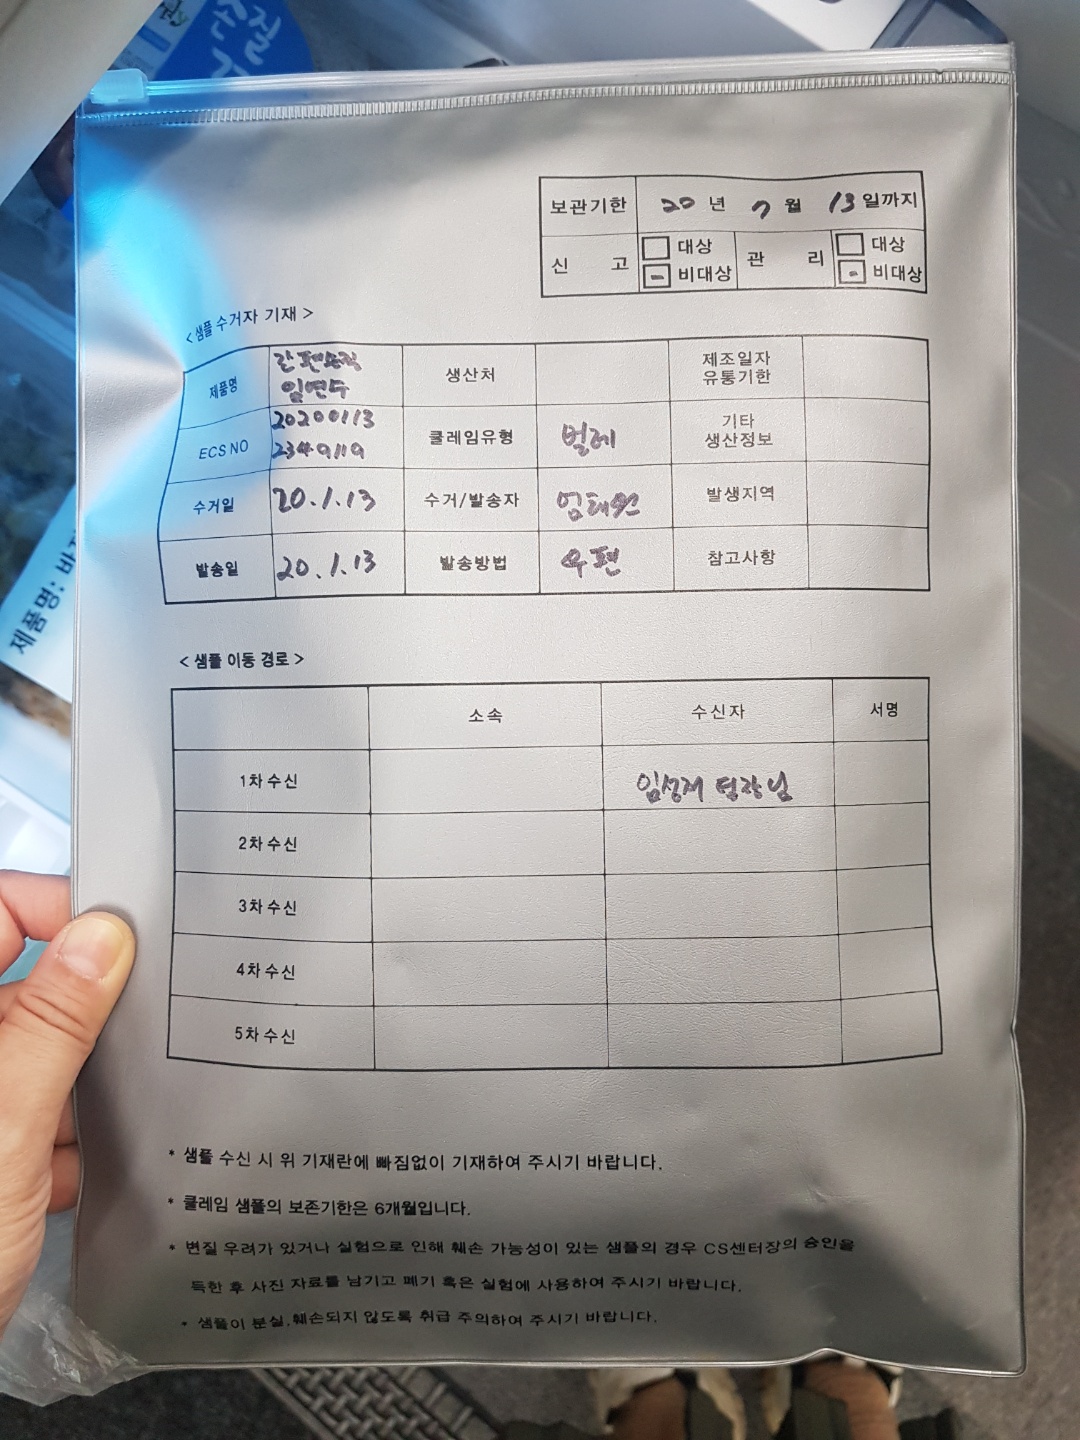 손질
보관기한 20년 7월 13일까지
신 고 대상 비대상 관 리 대상 비대상
<샘플 수거자 기재>
제품명 간편손질 임연수 생산처 제조일자 유통기한
ECS NO 20200113 2349119 클레임유형 벌레 기타 생산정보
수거일 20.1.13 수거/발송자 엄태원 발생지역
발송일 20.1.13 발송방법 우편 참고사항
제품명:
<샘플 이동 경로>
소속 수신자 서명
1차 수신 임성재 팀장님
2차 수신
3차 수신
4차 수신
5차 수신
* 샘플 수신 시 위 기재란에 빠짐없이 기재하여 주시기 바랍니다.
* 클레임 샘플의 보존기한은 6개월입니다.
* 변질 우려가 있거나 실험으로 인해 훼손 가능성이 있는 샘플의 경우 CS센터장의 승인을
득한 후 사진 자료를 남기고 폐기 혹은 실험에 사용하여 주시기 바랍니다.
* 샘플이 분실,훼손되지 않도록 취급 주의하여 주시기 바랍니다.